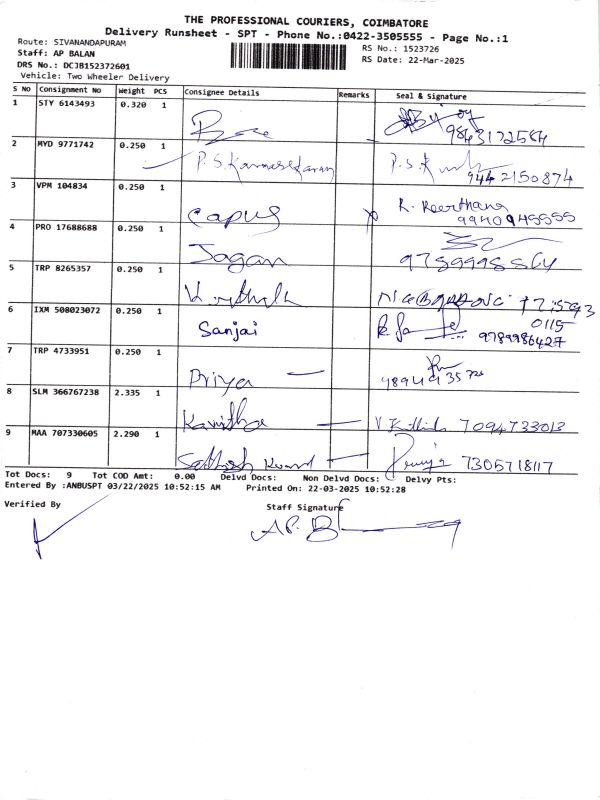 THE PROFESSIONAL COURIERS, COIMBATORE
Delivery Runsheet - SPT - Phone No.:0422-3505555 - Page No.:1
Route: SIVANANDAPURAM
RS No.: 1523726
Staff: AP BALAN
RS Date: 22-Mar-2025
DRS No.: DCJB152372601
Vehicle: Two Wheeler Delivery
S No Consignment No Weight PCS Consignee Details Remarks Seal & Signature
1 STY 6143493 0.320 1
9843172564
2 MYD 9771742 0.250 1 P.S. Kunasekaran P.S.K 9442150874
3 VPM 104834 0.250 1 Capus R. Keerthana
9940945555
4 PRO 17688688 0.250 1 Jagan
5 TRP 8265357 0.250 1
6 IXM 508023072 0.250 1 Sanjai 0115
9789986427
7 TRP 4733951 0.250 1 Priya
8 SLM 366767238 2.335 1 Kavitha 7094733013
9 MAA 707330605 2.290 1 Sathish Kumar 7305718117
Tot Docs: 9 Tot COD Amt: 0.00 Delvd Docs: Non Delvd Docs: Delvy Pts:
Entered By :ANBUSPT 03/22/2025 10:52:15 AM Printed On: 22-03-2025 10:52:28
Verified By
Staff Signature
A.P. B